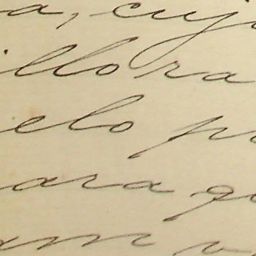 a, cuj
illo ra
elo p
ara q
am v